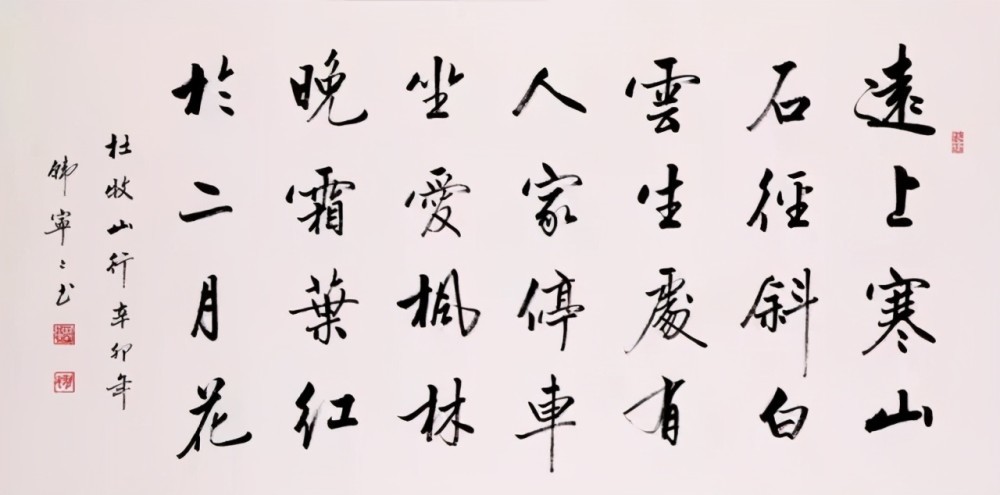 遠上寒山
石徑斜白
雲生處有
人家停車
坐愛楓林
晚霜葉紅
於二月花
杜牧山行辛卯年
韩寧寧书